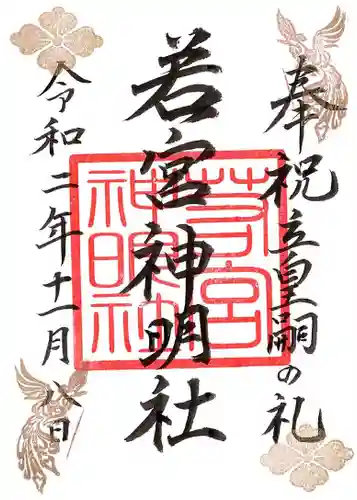 奉祝立皇嗣の礼
若宮神明社
若宮
神明社
令和二年十一月八日